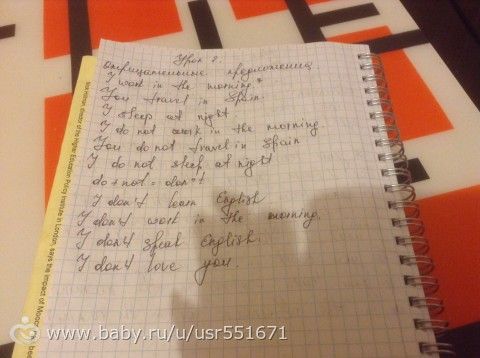 Урок 2.
отрицательные предложения.
I work in the morning.
You travel in Spain.
I sleep at night
I do not work in the morning.
You do not travel in Spain
I do not sleep at night
do + not = don't
I don't learn English
I don't work in the morning.
I don't speak English.
I don't love you.
www.baby.ru/u/usr551671
director of the Higher Education Policy Institute in London, says the impact of